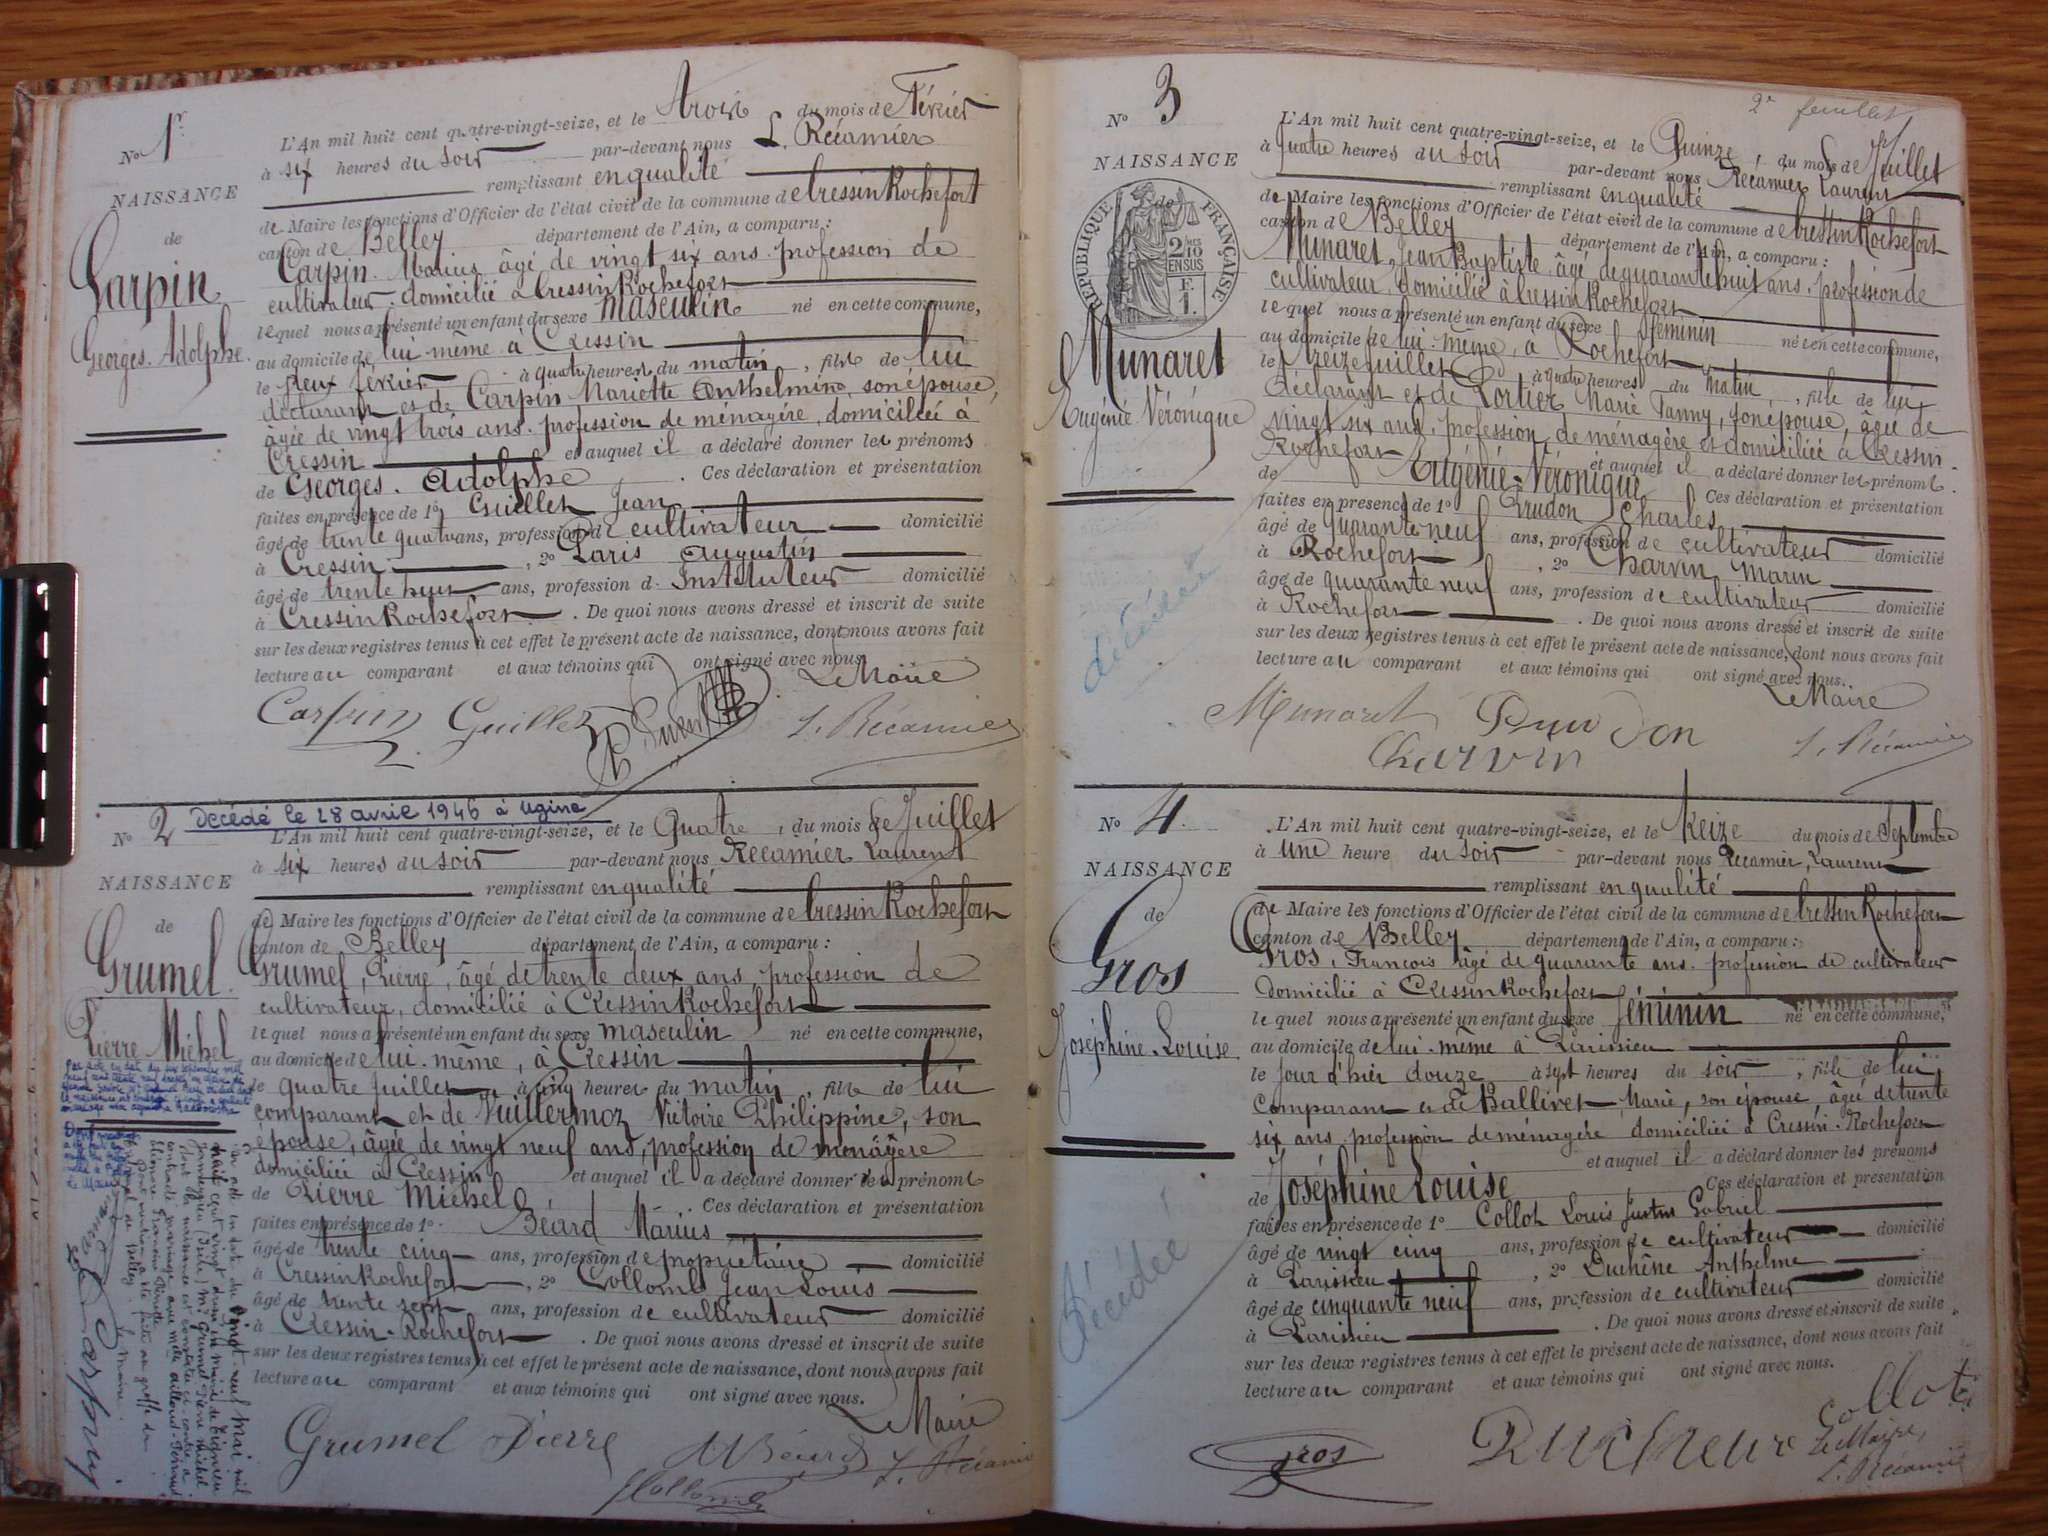 No 1r
NAISSANCE
de
Carpin
Georges. Adolphe.
L'An mil huit cent quatre-vingt-seize, et le trois du mois de Février
à six heures du soir par-devant nous L. Récamier
remplissant en qualité
de Maire les fonctions d'Officier de l'état civil de la commune de Cressin Rochefort
canton de Belley département de l'Ain, a comparu :
Carpin. Marius âgé de vingt six ans. profession de
cultivateur. domicilié à Cressin Rochefort
lequel nous a présenté un enfant du sexe masculin né en cette commune,
au domicile de lui même à Cressin
le deux février à quatre heures du matin, fils de lui
déclarant et de Carpin Mariette Anthelmine, son épouse,
âgée de vingt trois ans. profession de ménagère, domiciliée à
Cressin et auquel il a déclaré donner les prénoms
de Georges. Adolphe. Ces déclaration et présentation
faites en présence de 1o Guillet Jean
âgé de trente quatre ans, profession de cultivateur domicilié
à Cressin, 2o Paris Augustin
âgé de trente huit ans, profession d. Instituteur domicilié
à Cressin Rochefort. De quoi nous avons dressé et inscrit de suite
sur les deux registres tenus à cet effet le présent acte de naissance, dont nous avons fait
lecture au comparant et aux témoins qui ont signé avec nous.
Le Maire
Carpin Guillet L. Récamier
No 2
Décédé le 28 avril 1946 à Ugine
NAISSANCE
de
Grumel.
Pierre Michel
L'An mil huit cent quatre-vingt-seize, et le Quatre, du mois de Juillet
à six heures du soir par-devant nous Récamier Laurent
remplissant en qualité
de Maire les fonctions d'Officier de l'état civil de la commune de Cressin Rochefort
canton de Belley département de l'Ain, a comparu :
Grumel, Pierre, âgé de trente deux ans, profession de
cultivateur, domicilié à Cressin Rochefort
lequel nous a présenté un enfant du sexe masculin né en cette commune,
au domicile de lui-même, à Cressin
le quatre juillet à cinq heures du matin, fils de lui
comparant et de Vuillermoz Victoire Philippine, son
épouse, âgée de vingt neuf ans, profession de ménagère
domiciliée à Cressin et auquel il a déclaré donner les prénoms
de Pierre Michel. Ces déclaration et présentation
faites en présence de 1o. Béard Marius
âgé de trente cinq ans, profession de propriétaire domicilié
à Cressin Rochefort, 2o Collomb Jean Louis
âgé de trente sept ans, profession de cultivateur domicilié
à Cressin-Rochefort. De quoi nous avons dressé et inscrit de suite
sur les deux registres tenus à cet effet le présent acte de naissance, dont nous avons fait
lecture au comparant et aux témoins qui ont signé avec nous.
Le Maire
Grumel Pierre M Béard L. Récamier
Collomb
2e feuillet
No 3
NAISSANCE
de
RÉPUBLIQUE FRANÇAISE
2/10 EN SUS
F. 1.
Munaret
Eugénie Véronique
décédée
L'An mil huit cent quatre-vingt-seize, et le Quinze du mois de Juillet
à quatre heures du soir par-devant nous Récamier Laurent
remplissant en qualité
de Maire les fonctions d'Officier de l'état civil de la commune de Cressin Rochefort
canton de Belley département de l'Ain, a comparu :
Munaret, Jean Baptiste, âgé de quarante huit ans, profession de
cultivateur, domicilié à Cressin Rochefort
lequel nous a présenté un enfant du sexe féminin né en cette commune,
au domicile de lui-même, à Rochefort
le treize juillet à quatre heures du matin, fille de lui,
déclarant et de Lortier Marie Fanny, son épouse, âgée de
vingt six ans, profession de ménagère et domiciliée à Cressin.
Rochefort et auquel il a déclaré donner les prénoms.
de Eugénie-Véronique Ces déclaration et présentation
faites en présence de 1o Prudon Charles
âgé de quarante neuf ans, profession de cultivateur domicilié
à Rochefort, 2o Charvin Marin
âgé de quarante neuf ans, profession de cultivateur domicilié
à Rochefort. De quoi nous avons dressé et inscrit de suite
sur les deux registres tenus à cet effet le présent acte de naissance, dont nous avons fait
lecture au comparant et aux témoins qui ont signé avec nous.
Le Maire
Munaret Prudon
Charvin L. Récamier
No 4.
NAISSANCE
de
Gros
Joséphine. Louise
Décédée
L'An mil huit cent quatre-vingt-seize, et le treize du mois de Septembre
à une heure du soir par-devant nous Récamier, Laurent
remplissant en qualité
de Maire les fonctions d'Officier de l'état civil de la commune de Cressin Rochefort
canton de Belley département de l'Ain, a comparu :
Gros, François âgé de quarante ans. profession de cultivateur
domicilié à Cressin Rochefort
lequel nous a présenté un enfant du sexe féminin né en cette commune,
au domicile de lui-même à Parissieu
le jour d'hier douze à sept heures du soir, fille de lui,
comparant et de Ballivet Marie, son épouse, âgée de trente
six ans. profession de ménagère domiciliée à Cressin-Rochefort
et auquel il a déclaré donner les prénoms
de Joséphine Louise Ces déclaration et présentation
faites en présence de 1o Collot Louis Justin Gabriel
âgé de vingt cinq ans, profession de cultivateur domicilié
à Parissieu, 2o Duchêne Anthelme
âgé de cinquante neuf ans, profession de cultivateur domicilié
à Parissieu. De quoi nous avons dressé et inscrit de suite
sur les deux registres tenus à cet effet le présent acte de naissance, dont nous avons fait
lecture au comparant et aux témoins qui ont signé avec nous.
Collot
Gros Le Maire,
L. Récamier